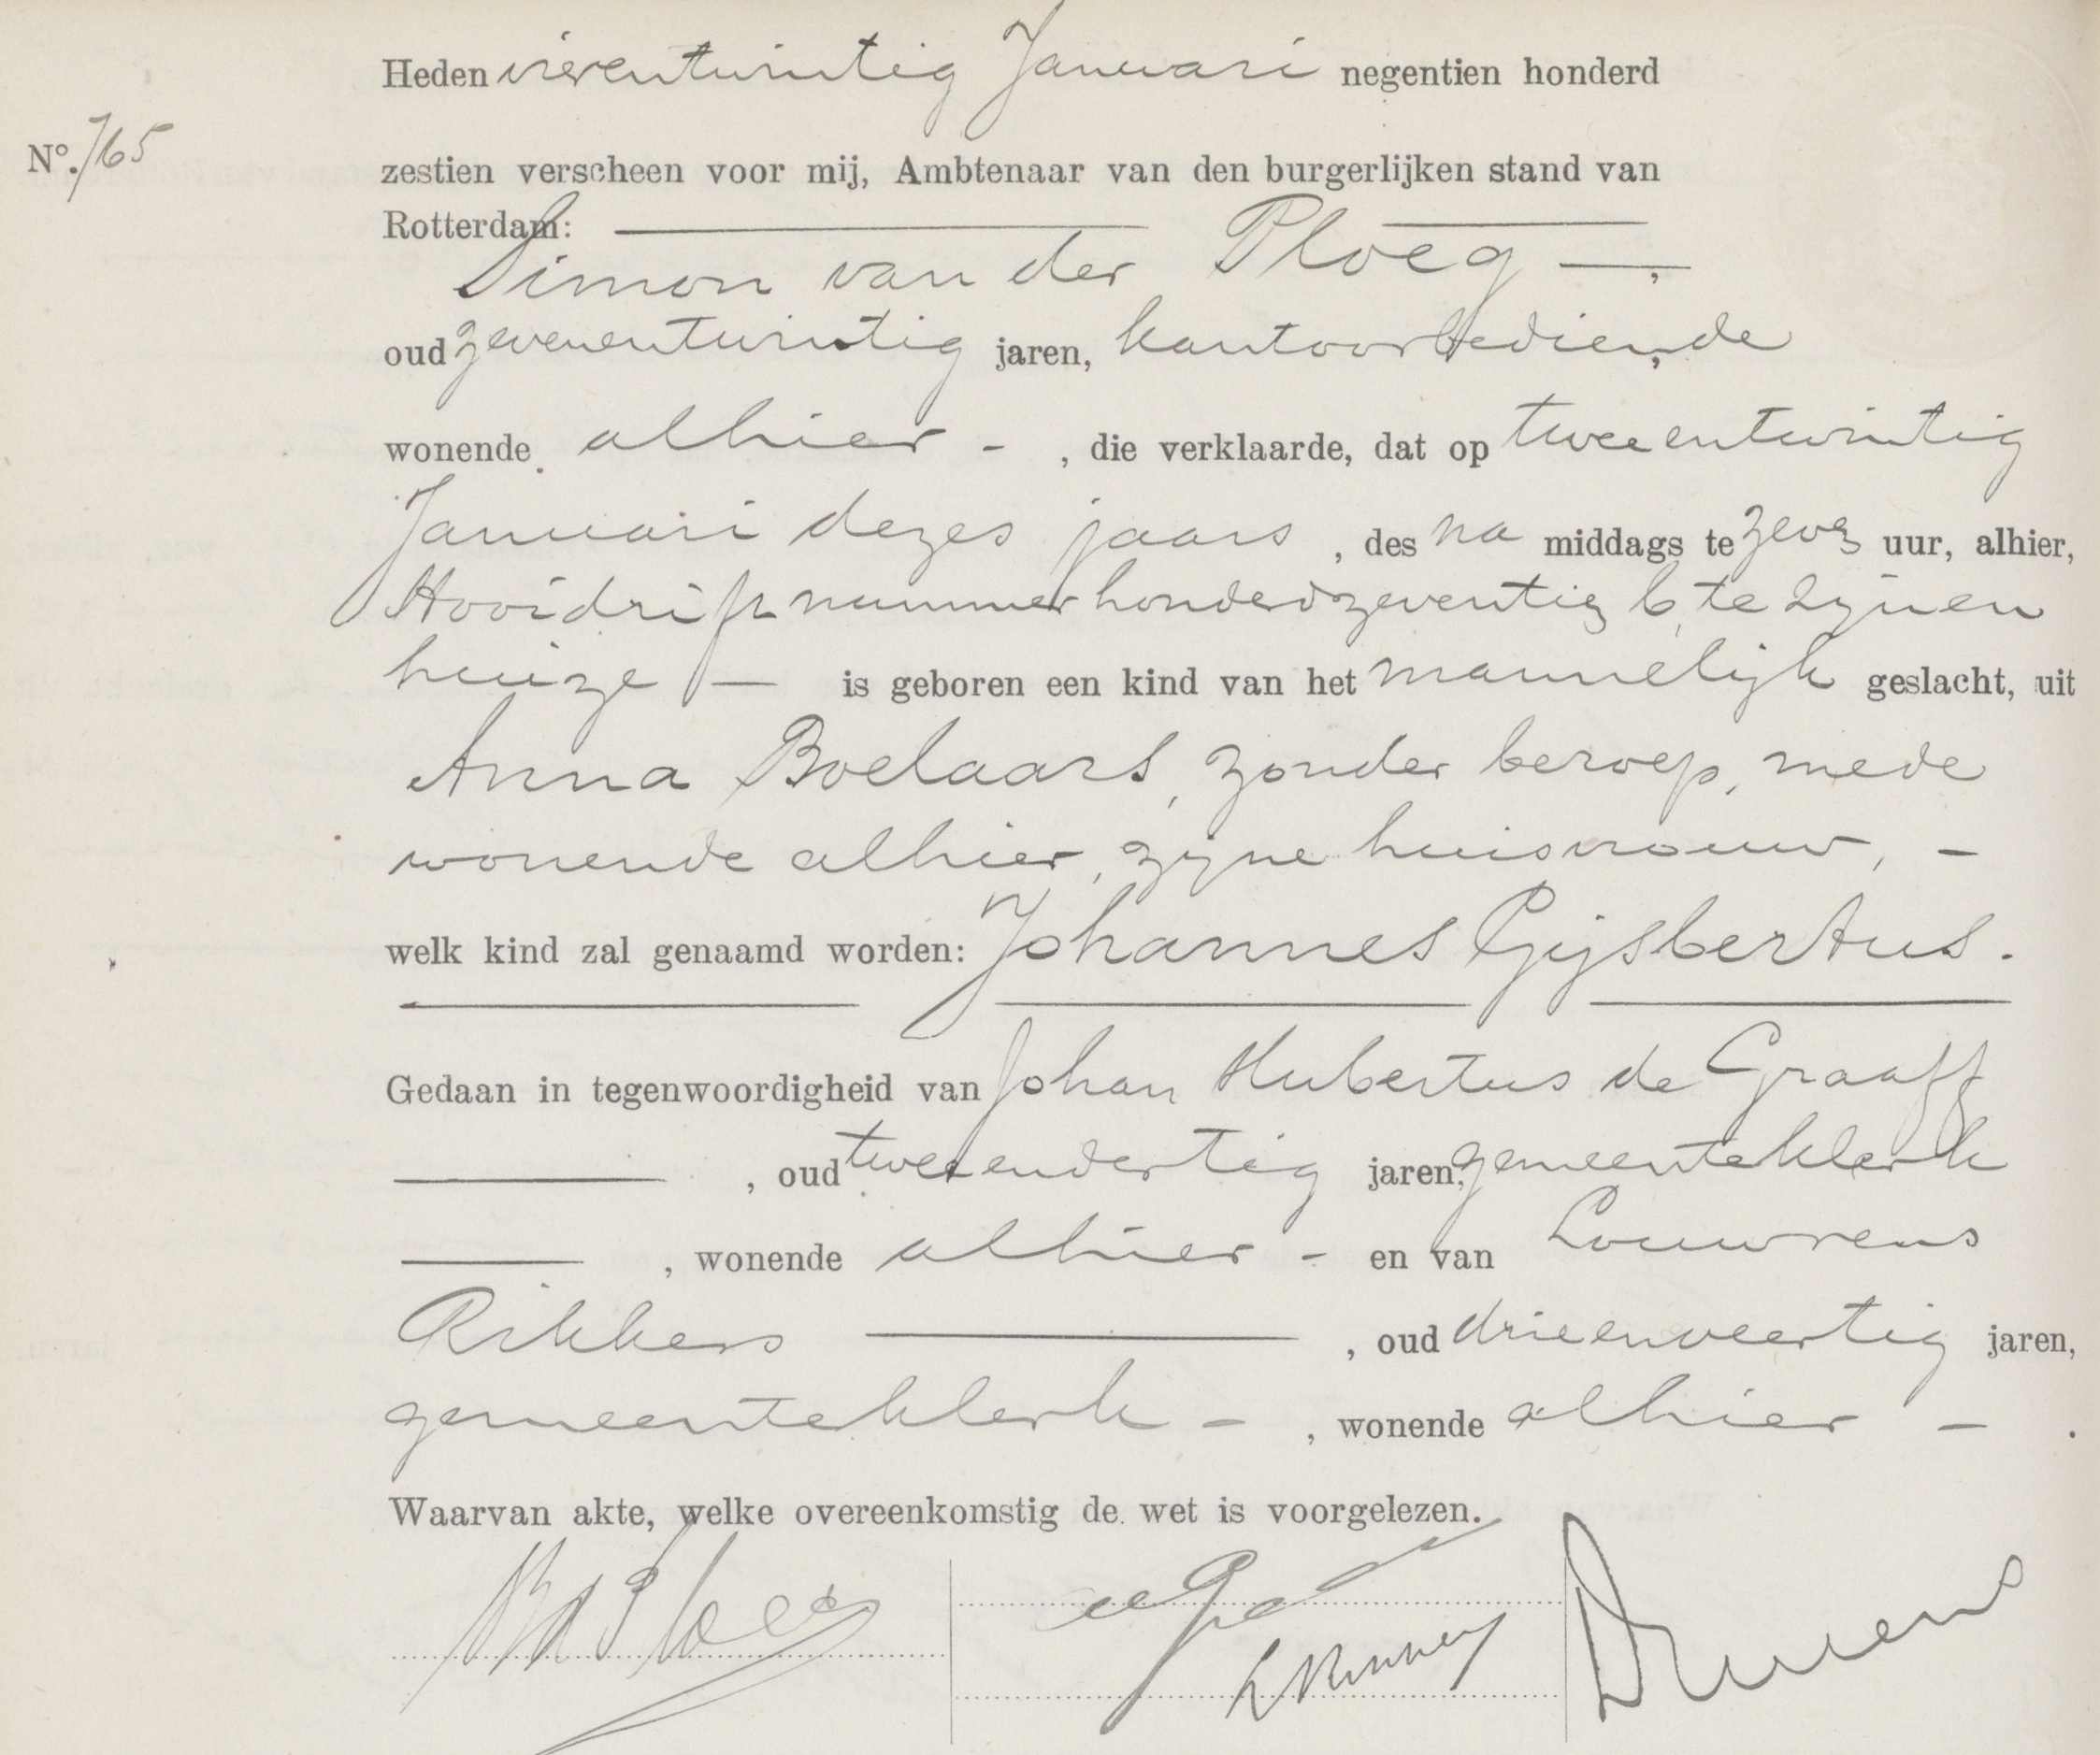 Heden vierentwintig Januari negentien honderd
No. 765
zestien verscheen voor mij, Ambtenaar van den burgerlijken stand van
Rotterdam:
Simon van der Ploeg —,
oud zevenentwintig jaren, kantoorbediende,
wonende alhier - , die verklaarde, dat op twee entwintig
Januari dezes jaars , des na middags te zeven uur, alhier,
Hooidrift nummer honderdzeventig b, te zijnen
huize — is geboren een kind van het mannelijk geslacht, uit
Anna Boelaars, zonder beroep, mede
wonende alhier, zijne huisvrouw, -
welk kind zal genaamd worden: Johannes Gijsbertus.
Gedaan in tegenwoordigheid van Johan Hubertus de Graaff
, oud tweeendertig jaren, gemeenteklerk
, wonende alhier - en van Louwrens
Rikkers , oud drieenveertig jaren,
gemeenteklerk - , wonende alhier - .
Waarvan akte, welke overeenkomstig de wet is voorgelezen.